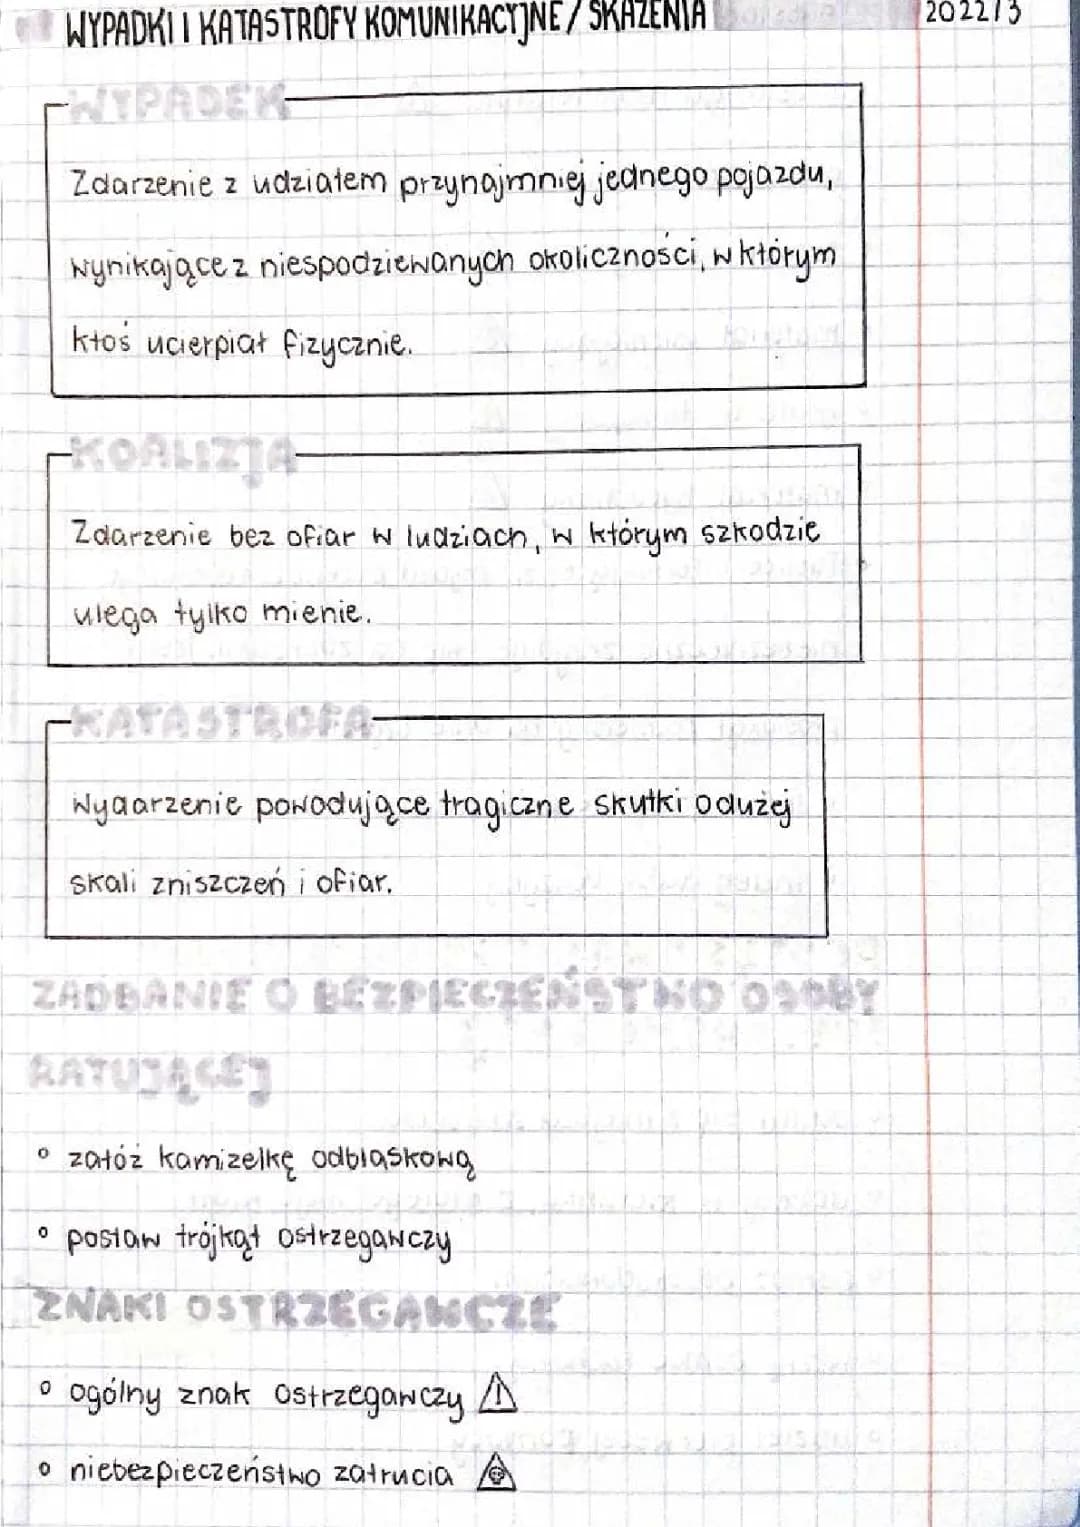 WYPADKI I KATASTROFY KOMUNIKACYJNE / SKAŻENIA
202213
WYPADEK
Zdarzenie z udziałem przynajmniej jednego pojazdu,
wynikające z niespodziewanych okoliczności, w którym
ktoś ucierpiał fizycznie.
KOALIZJA
Zdarzenie bez ofiar w ludziach, w którym szkodzie
ulega tylko mienie.
KATASTROFA
Wydarzenie powodujące tragiczne skutki o dużej
skali zniszczeń i ofiar.
ZADBANIE O BEZPIECZEŃSTWO OSOBY
RATUJĄCEJ
° załóż kamizelkę odblaskową
° postaw trójkąt ostrzegawczy
ZNAKI OSTRZEGAWCZE
° ogólny znak ostrzegawczy
° niebezpieczeństwo zatrucia